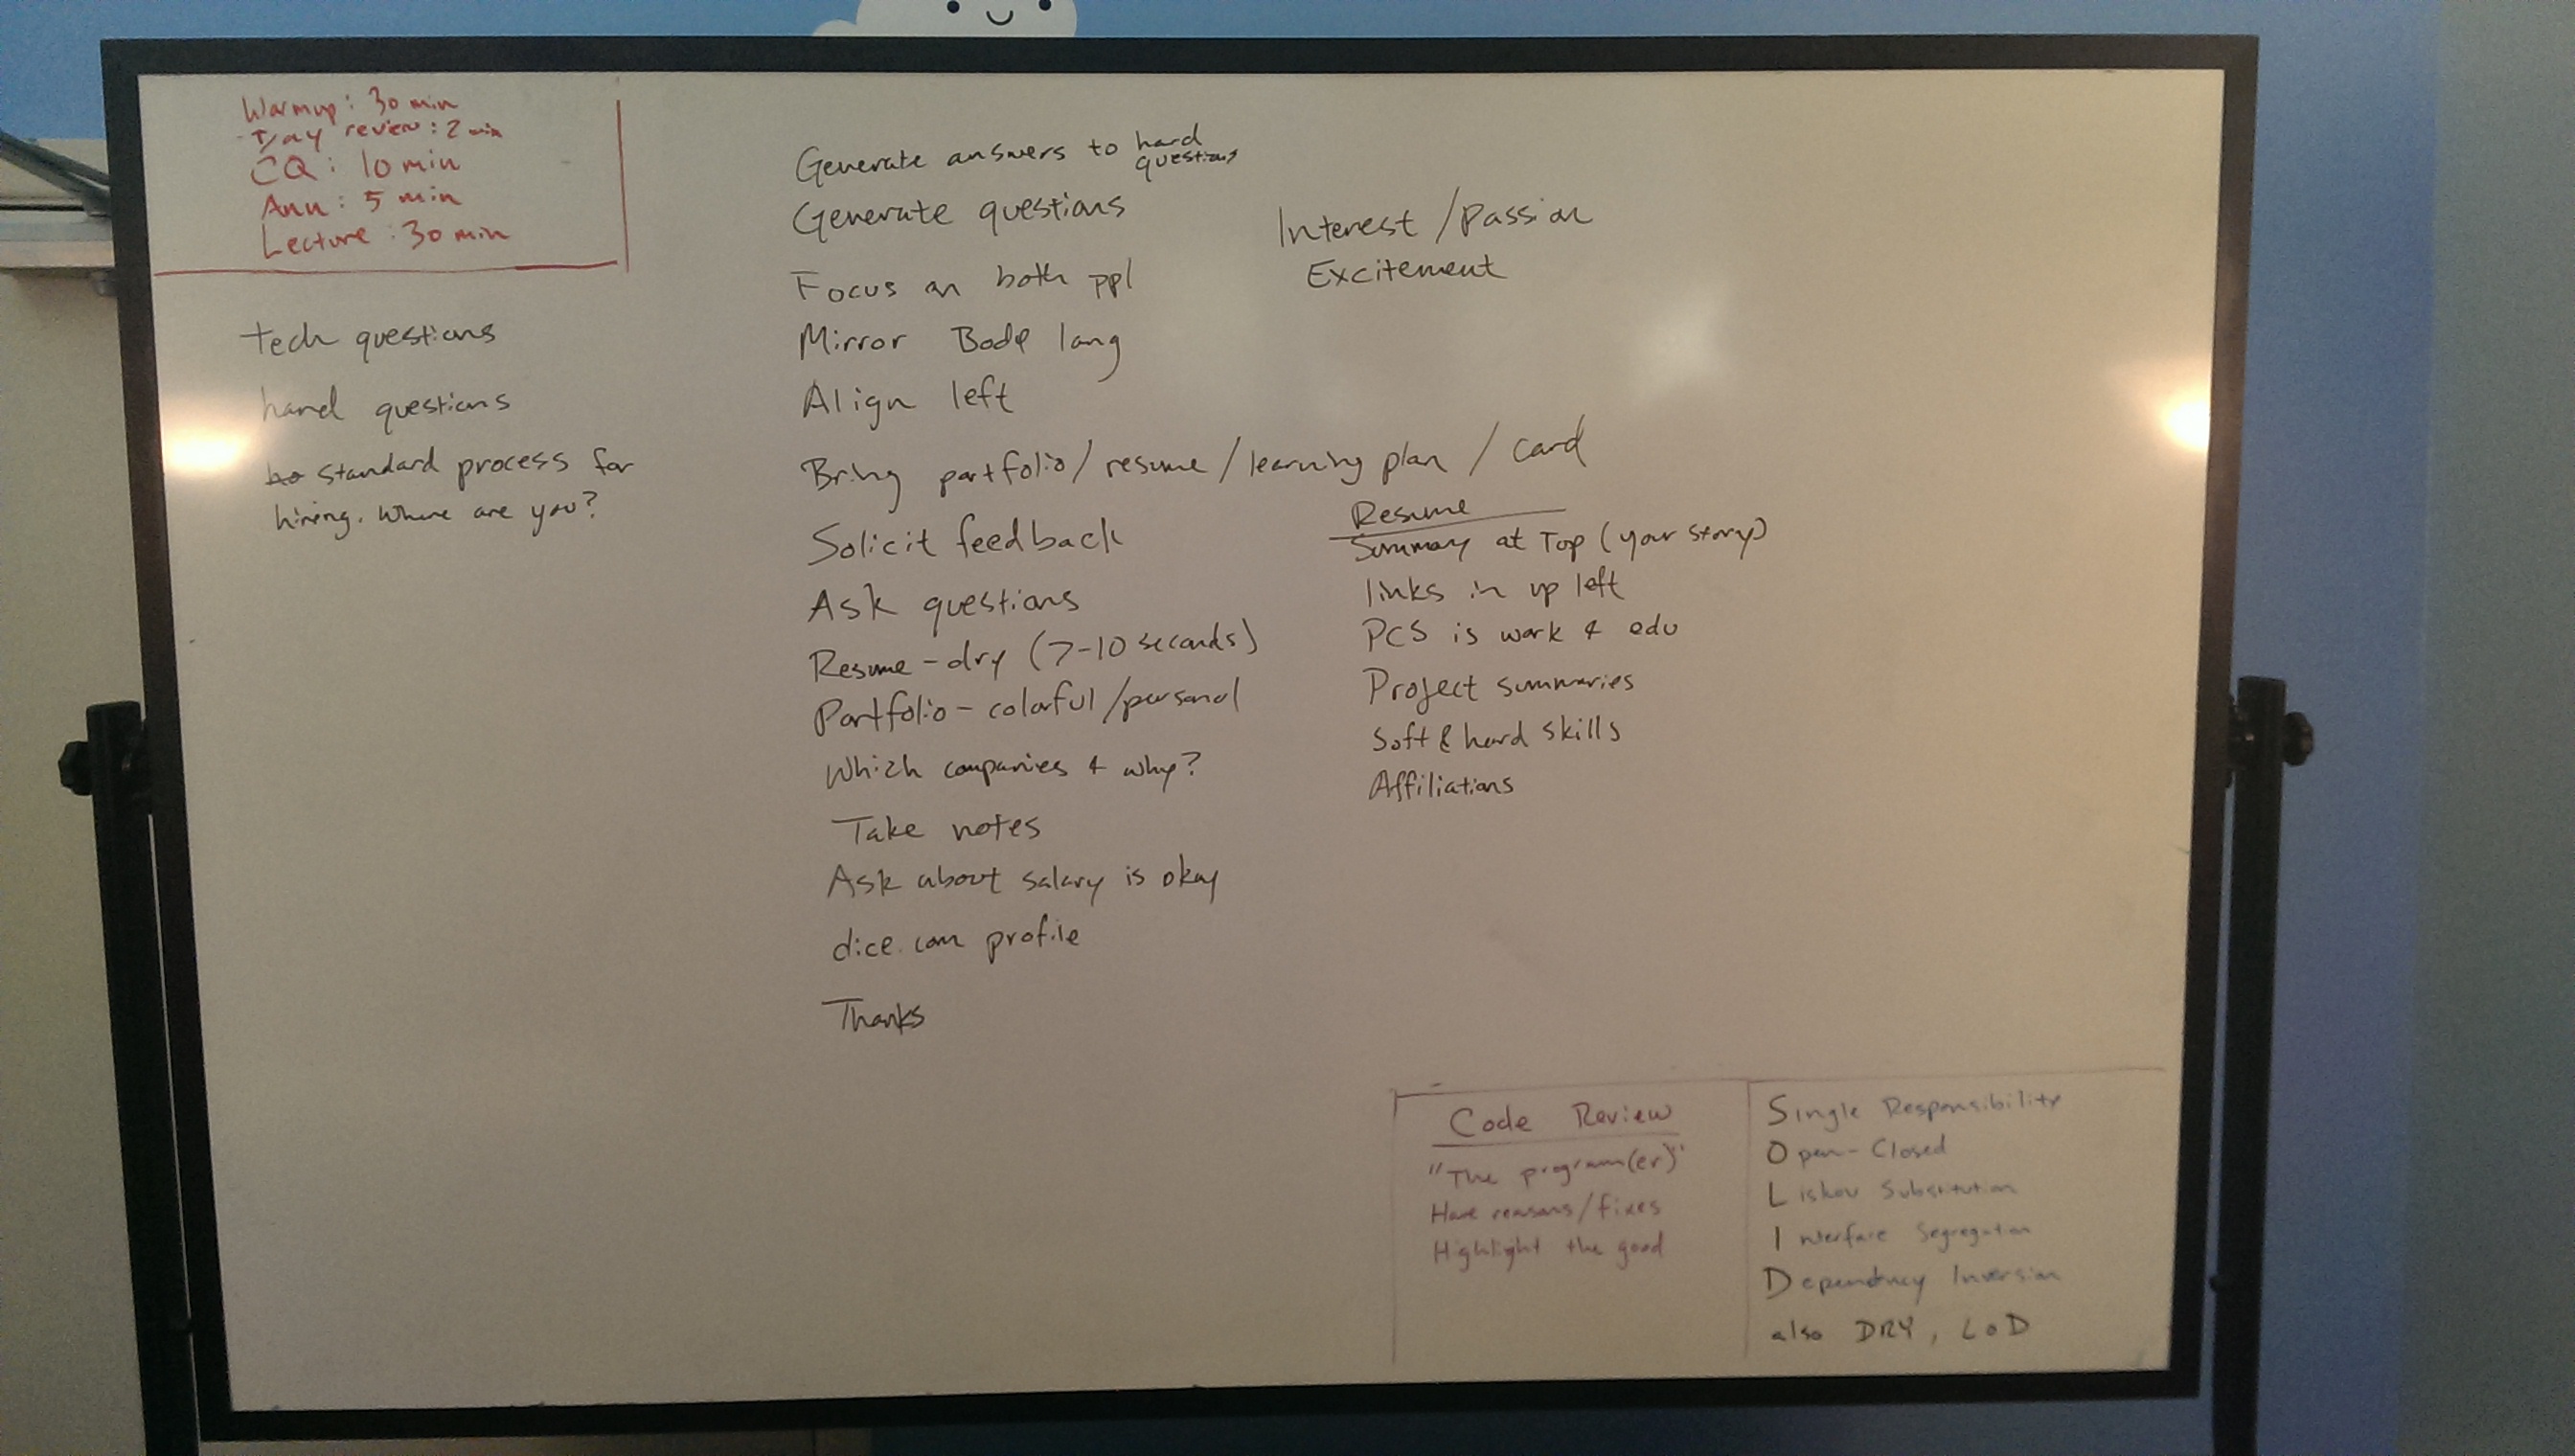 Warmup: 30 min
T/ay review: 2 min
CQ: 10 min
Ann: 5 min
Lecture: 30 min
tech questions
hard questions
no standard process for
hiring. Where are you?
Generate answers to hard
questions
Generate questions
Focus on both ppl
Mirror Body lang
Align left
Bring portfolio/resume/learning plan / card
Solicit feedback
Ask questions
Resume - dry (7-10 seconds)
Portfolio - colorful/personal
Which companies & why?
Take notes
Ask about salary is okay
dice.com profile
Thanks
Interest /Passion
Excitement
Resume
Summary at Top (your story)
links in up left
PCS is work & edu
Project summaries
Soft & hard skills
Affiliations
Code Review
"The program(er)"
Have reasons/fixes
Highlight the good
Single Responsibility
Open-Closed
Liskov Substitution
Interface Segregation
Dependency Inversion
also DRY, LoD